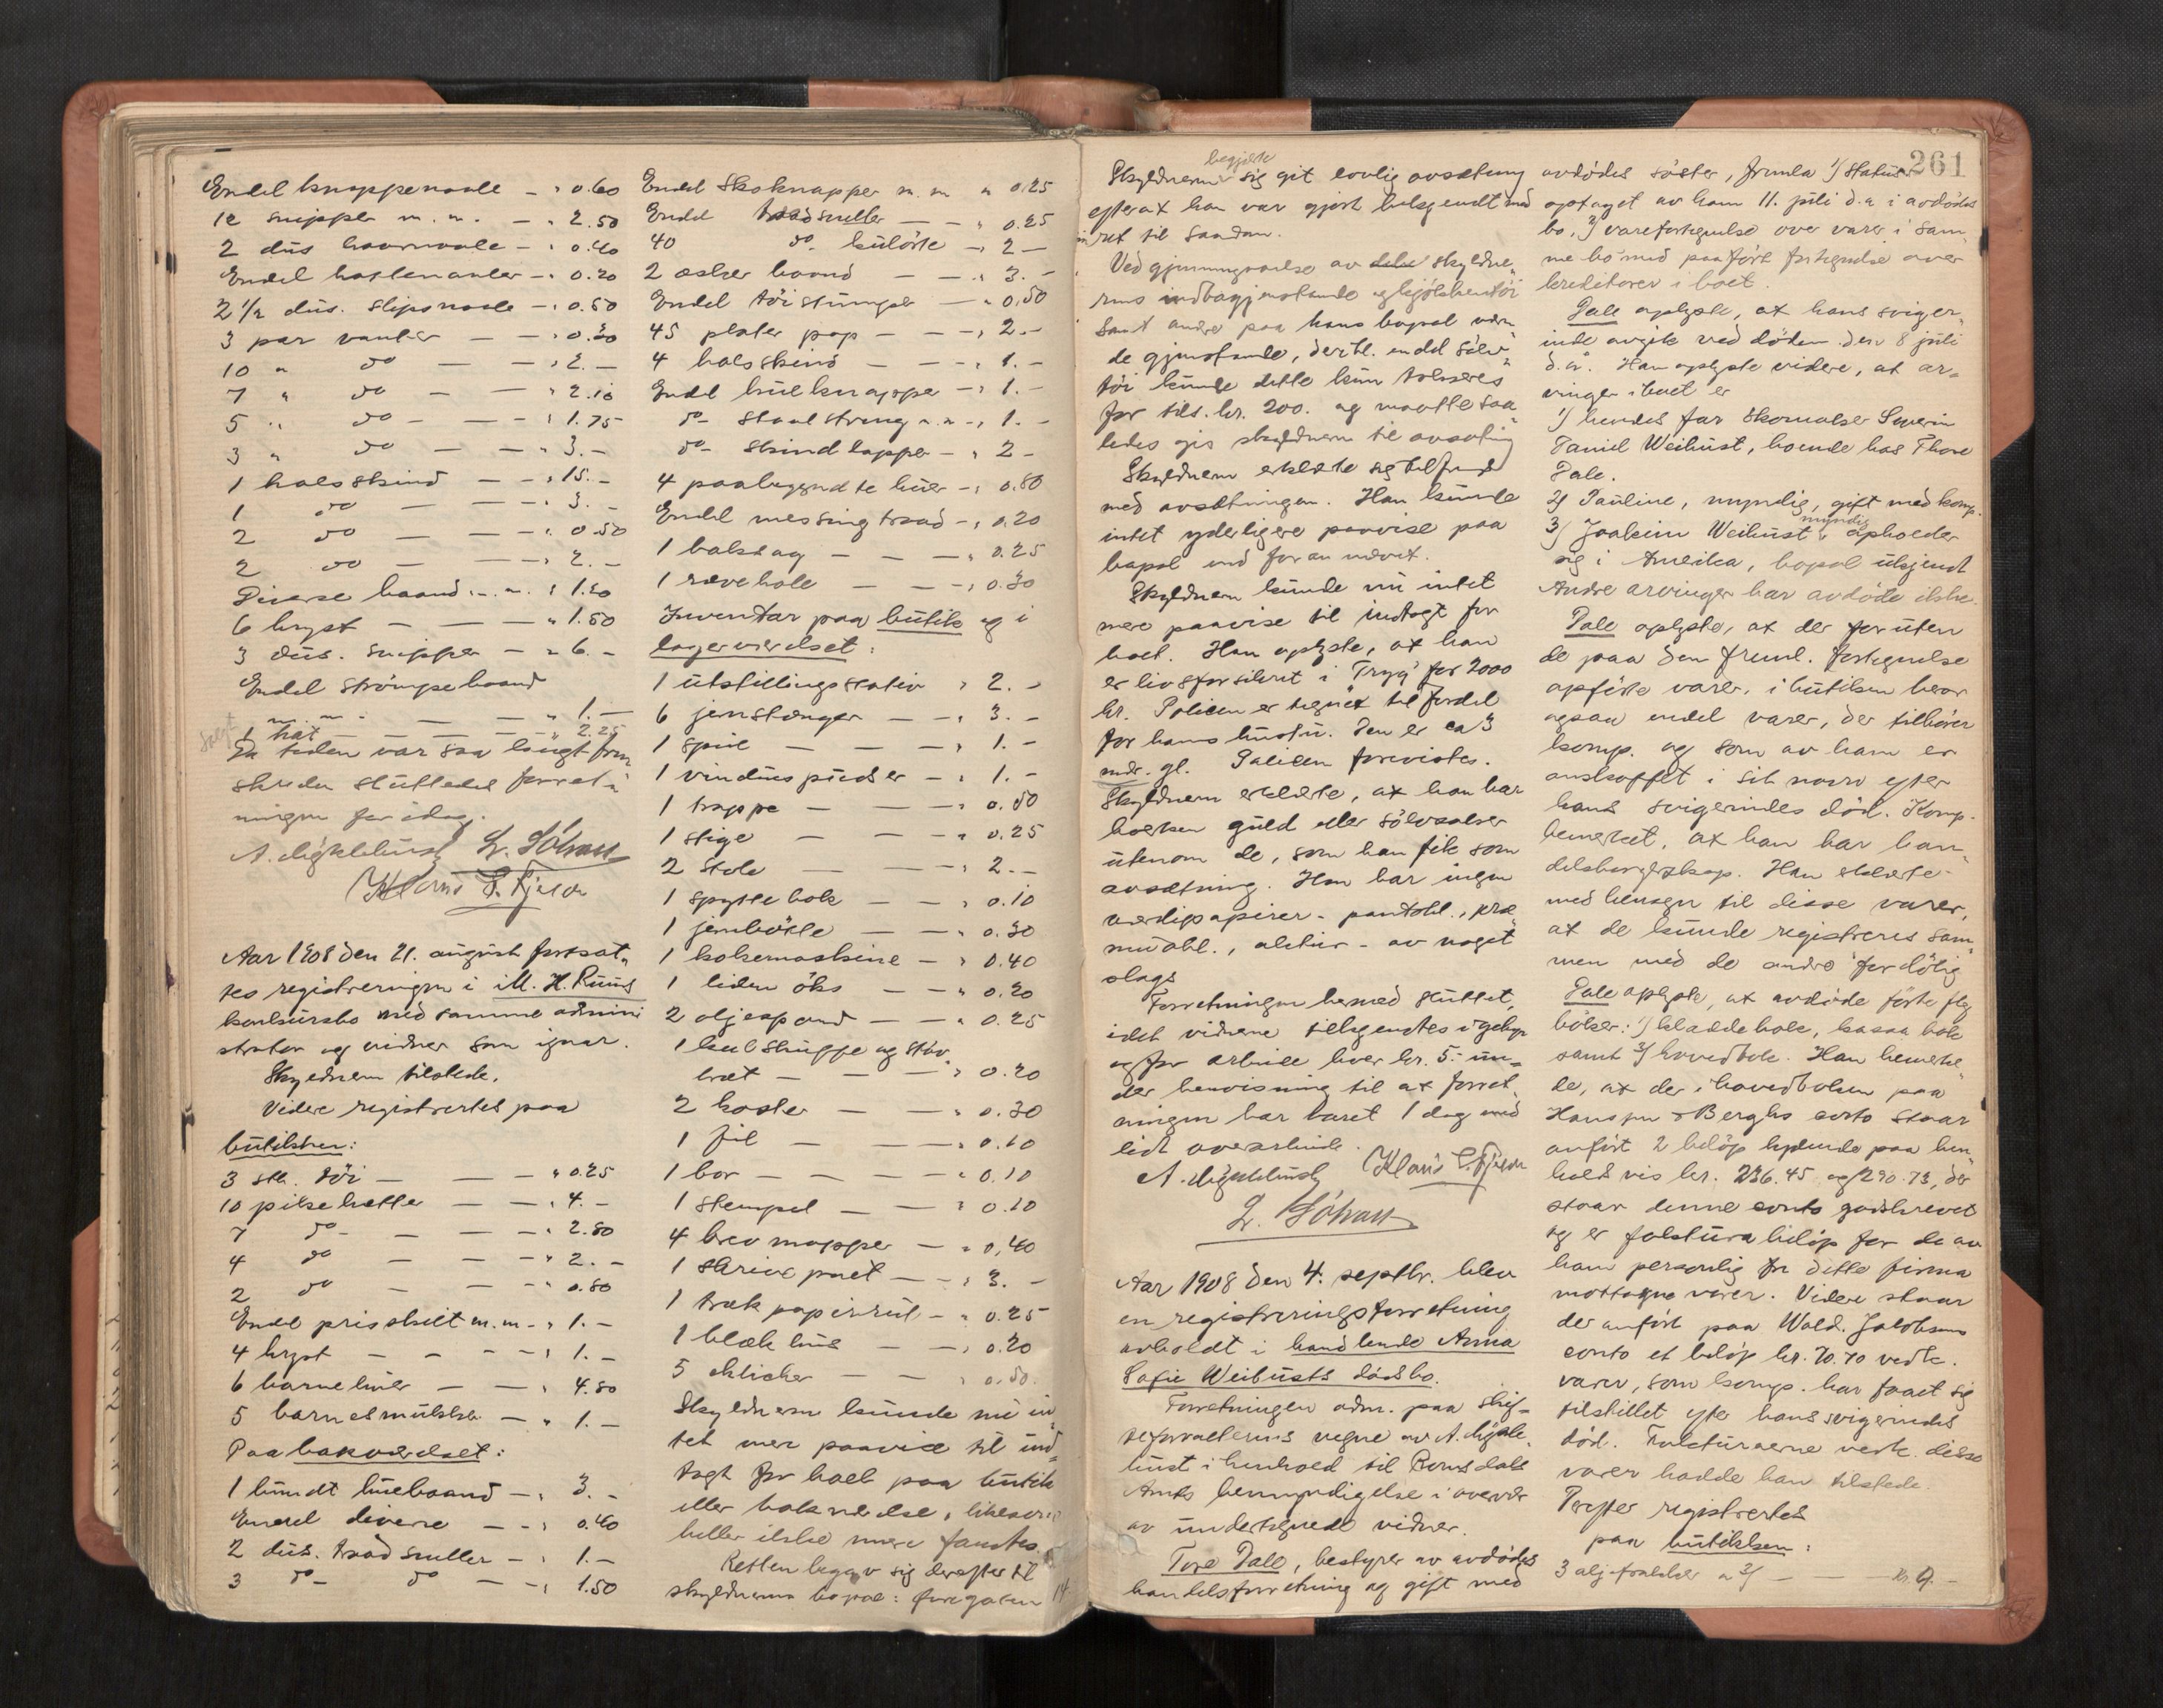 Endel knappenaale — " 0.60
12 snipper m. m. — " 2.50
2 dus haarnaale — " 0.40
Endel hattenaaler — " 0.20
2 1/2 dus. slipsnaale — " 0.50
3 par vanter — — " 0.30
10 " do — — " 2. —
7 " do — — " 2.10
5 " do — — " 1.75
3 " do — — " 3. –
1 halsskind — — " 15. –
1 do — — — " 3. –
2 do — — — " 0.50
2 do — — — " 2. –
Diverse baand m. m. " 1.50
6 kryst — — — " 1.50
3 dus. snipper — " 6. –
Endel strømpebaand
m. m. — — — " 1. —
solgt 1 hat — — — 2.25
Da tiden var saa langt frem
skreden sluttedes forret-
ningen for idag.
Klaus
Aar 1908 den 21. august fortsat-
tes registreringen i M. H. Ruuds
konkursbo med samme admini
strator og vidner som igaar.
Skyldneren tilstede.
Videre registrertes paa
butikken:
3 stk. tøi — — — " 0.25
10 pikehatte — — " 4. –
7 do — — — " 2.80
4 do — — — " 2. –
2 do — — — " 0.80
Endel prisskilt m. m. " 1. –
4 kryst — — — " 1. –
6 barneluer — — " 4.80
5 barnesmukke — " 1. –
Paa bakværelset:
1 bundt huebaand — " 3. –
Endel diverse — — " 0.40
2 dus. traadsneller — " 1. –
3 do do — — " 1.50
Endel skoknapper m. m " 0.25
Endel traadsneller — — " 0.25
40 do kulørte — " 2 —
2 æsker baand — — " 3. –
Endel tøistumper — " 0.50
45 plater pap — — " 2. –
4 halsskind — — — " 1. –
Endel hueknapper — " 1. –
do staalstreng m.m — " 1. –
do skindlapper — " 2 –
4 paabegyndte huer — " 0.80
Endel messingtraad — " 0.20
1 baksag — — — " 0.25
1 rævehale — — " 0.30
Inventar paa butik og i
lagerværelset:
1 utstillingsstativ " 2. –
6 jernstænger — — " 3. –
1 speil — — — " 1. –
1 vinduspudser — " 1. –
1 trappe — — — " 0.50
1 stige — — — " 0.25
2 stole — — — " 2. –
1 spyttebak — — " 0.10
1 jernbøtte — — " 0.30
1 kokemaskine — " 0.40
1 liden øks — — " 0.20
2 oljespand — — " 0.25
1 kulskuffe og støv
bræt — — — " 0.20
2 koster — — — " 0.30
1 fil — — — " 0.10
1 bor — — — — " 0.10
1 stempel — — " 0.10
4 brevmapper — " 0.40
1 skrivepult — — " 3. –
1 træk papirrul — " 0.25
1 blækhus — — " 0.20
5 — — " 0.50
Skyldneren kunde nu in
tet mer paavise til ind
tægt for boet paa butik
eller bakværelse, likesom
heller ikke mere fandtes.
Retten begav sig derefter til
skyldnerens bopæl: Furegaten 14
261
Skyldneren begjærte sig git lovlig avsætning
efterat han var gjort bekjendt med
ret til saadan.
Ved gjennemgaaelse av skyldne-
rens indbogjenstande og kjøkkentøi
samt andre paa hans bopæl være
de gjenstande, dertil endel sølv-
tøi kunde dette kun takseres
for tils. kr. 200. og maatte saa
ledes gis skyldneren til avsætning
Skyldneren erklærte sig tilfreds
med avsætningen. Han kunde
intet yderligere paavise paa
bopæl end foran nævnt.
Skyldneren kunde nu intet
mere paavise til indtægt for
boet. Han oplyste, at han
er livsforsikret i "Tryg" for 2000
kr. Policen er tegnet til fordel
for hans hustru. Den er ca 3
mdr. gl. Policen forevistes.
Skyldneren erklærte, at han har
hverken guld eller sølvsaker
utenom de, som han fik som
avsætning. Han har ingen
værdipapirer – pantobl., præ
mieobl., aktier – av noget
slags
Forretningen hermed sluttet,
idet vidnerne tilkjendtes i gebyr
og for arbeide hver kr. 5. – un-
der henvisning til at forret-
ningen har varet 1 dag med
lidt overarbeide.
Klaus
Aar 1908 den 4. septbr. blev
en registreringsforretning
avholdt i handlende Anna
Sofie Weibusts dødsbo.
Forretningen adm. paa skif-
teforvalterens vegne av A.
i henhold til Romsdals
Amts bemyndigelse i overvær
av undertegnede vidner.
Tore Dale, bestyrer av avdødes
handelsforretning og gift med
avdødes søster, fremla 1) status
optaget av ham 11. juli d.a. i avdødes
bo, 2) varefortegnelse over varer i sam-
me bo med paaført fortegnelse over
kreditorer i boet.
Dale oplyste, at hans sviger-
inde avgik ved døden den 8 juli
d. a. Han oplyste videre, at ar-
vinger i boet er
1) hendes far skomaker Severin
Daniel Weibust, boende hos Thore
Dale.
2) Pauline, myndig, gift med komp.
3) Joakim Weibust, myndig opholder
sig i Amerika, bopæl ukjendt
Andre arvinger har avdøde ikke.
Dale oplyste, at der foruten
de paa den freml. fortegnelse
opførte varer, i butikken beror
ogsaa endel varer, der tilhører
komp. og som av ham er
anskaffet i sit navn efter
hans svigerindes død. Komp.
bemerket, at han har han-
delsborgerskap. Han erklærte
med hensyn til disse varer,
at de kunde registreres sam-
men med de andre forløbig
Dale oplyste, at avdøde førte flg
bøker: 1) kladdebok, kassabok
samt 3) hovedbok. Han bemerke-
de, at der i hovedboken paa
Hansen & Berghs conto staar
anført 2 beløp lydende paa hen-
holdsvis kr. 236.45 og 290.73, der
staar denne conto godskrevet
og er fakturabeløp for de av
ham personlig fra dette firma
mottagne varer. Videre staar
der anført paa Wald. Jakobsens
conto et beløp kr. 70.70 vedk.
varer, som komp. har faaet sig
tilstillet efter hans svigerindes
død. Fakturaerne vedk. disse
varer hadde han tilstede.
Derefter registrertes
paa butikken:
3 a 3/ — — — kr. 9. —